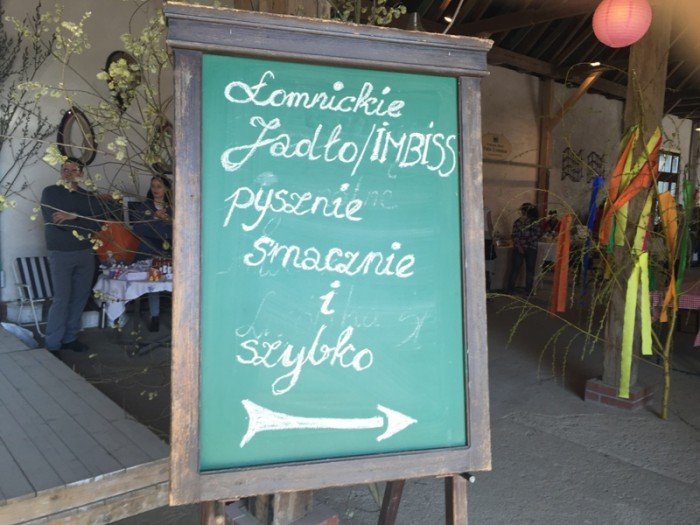 Łomnickie
Jadło/IMBISS
pysznie
smacznie
i
szybko